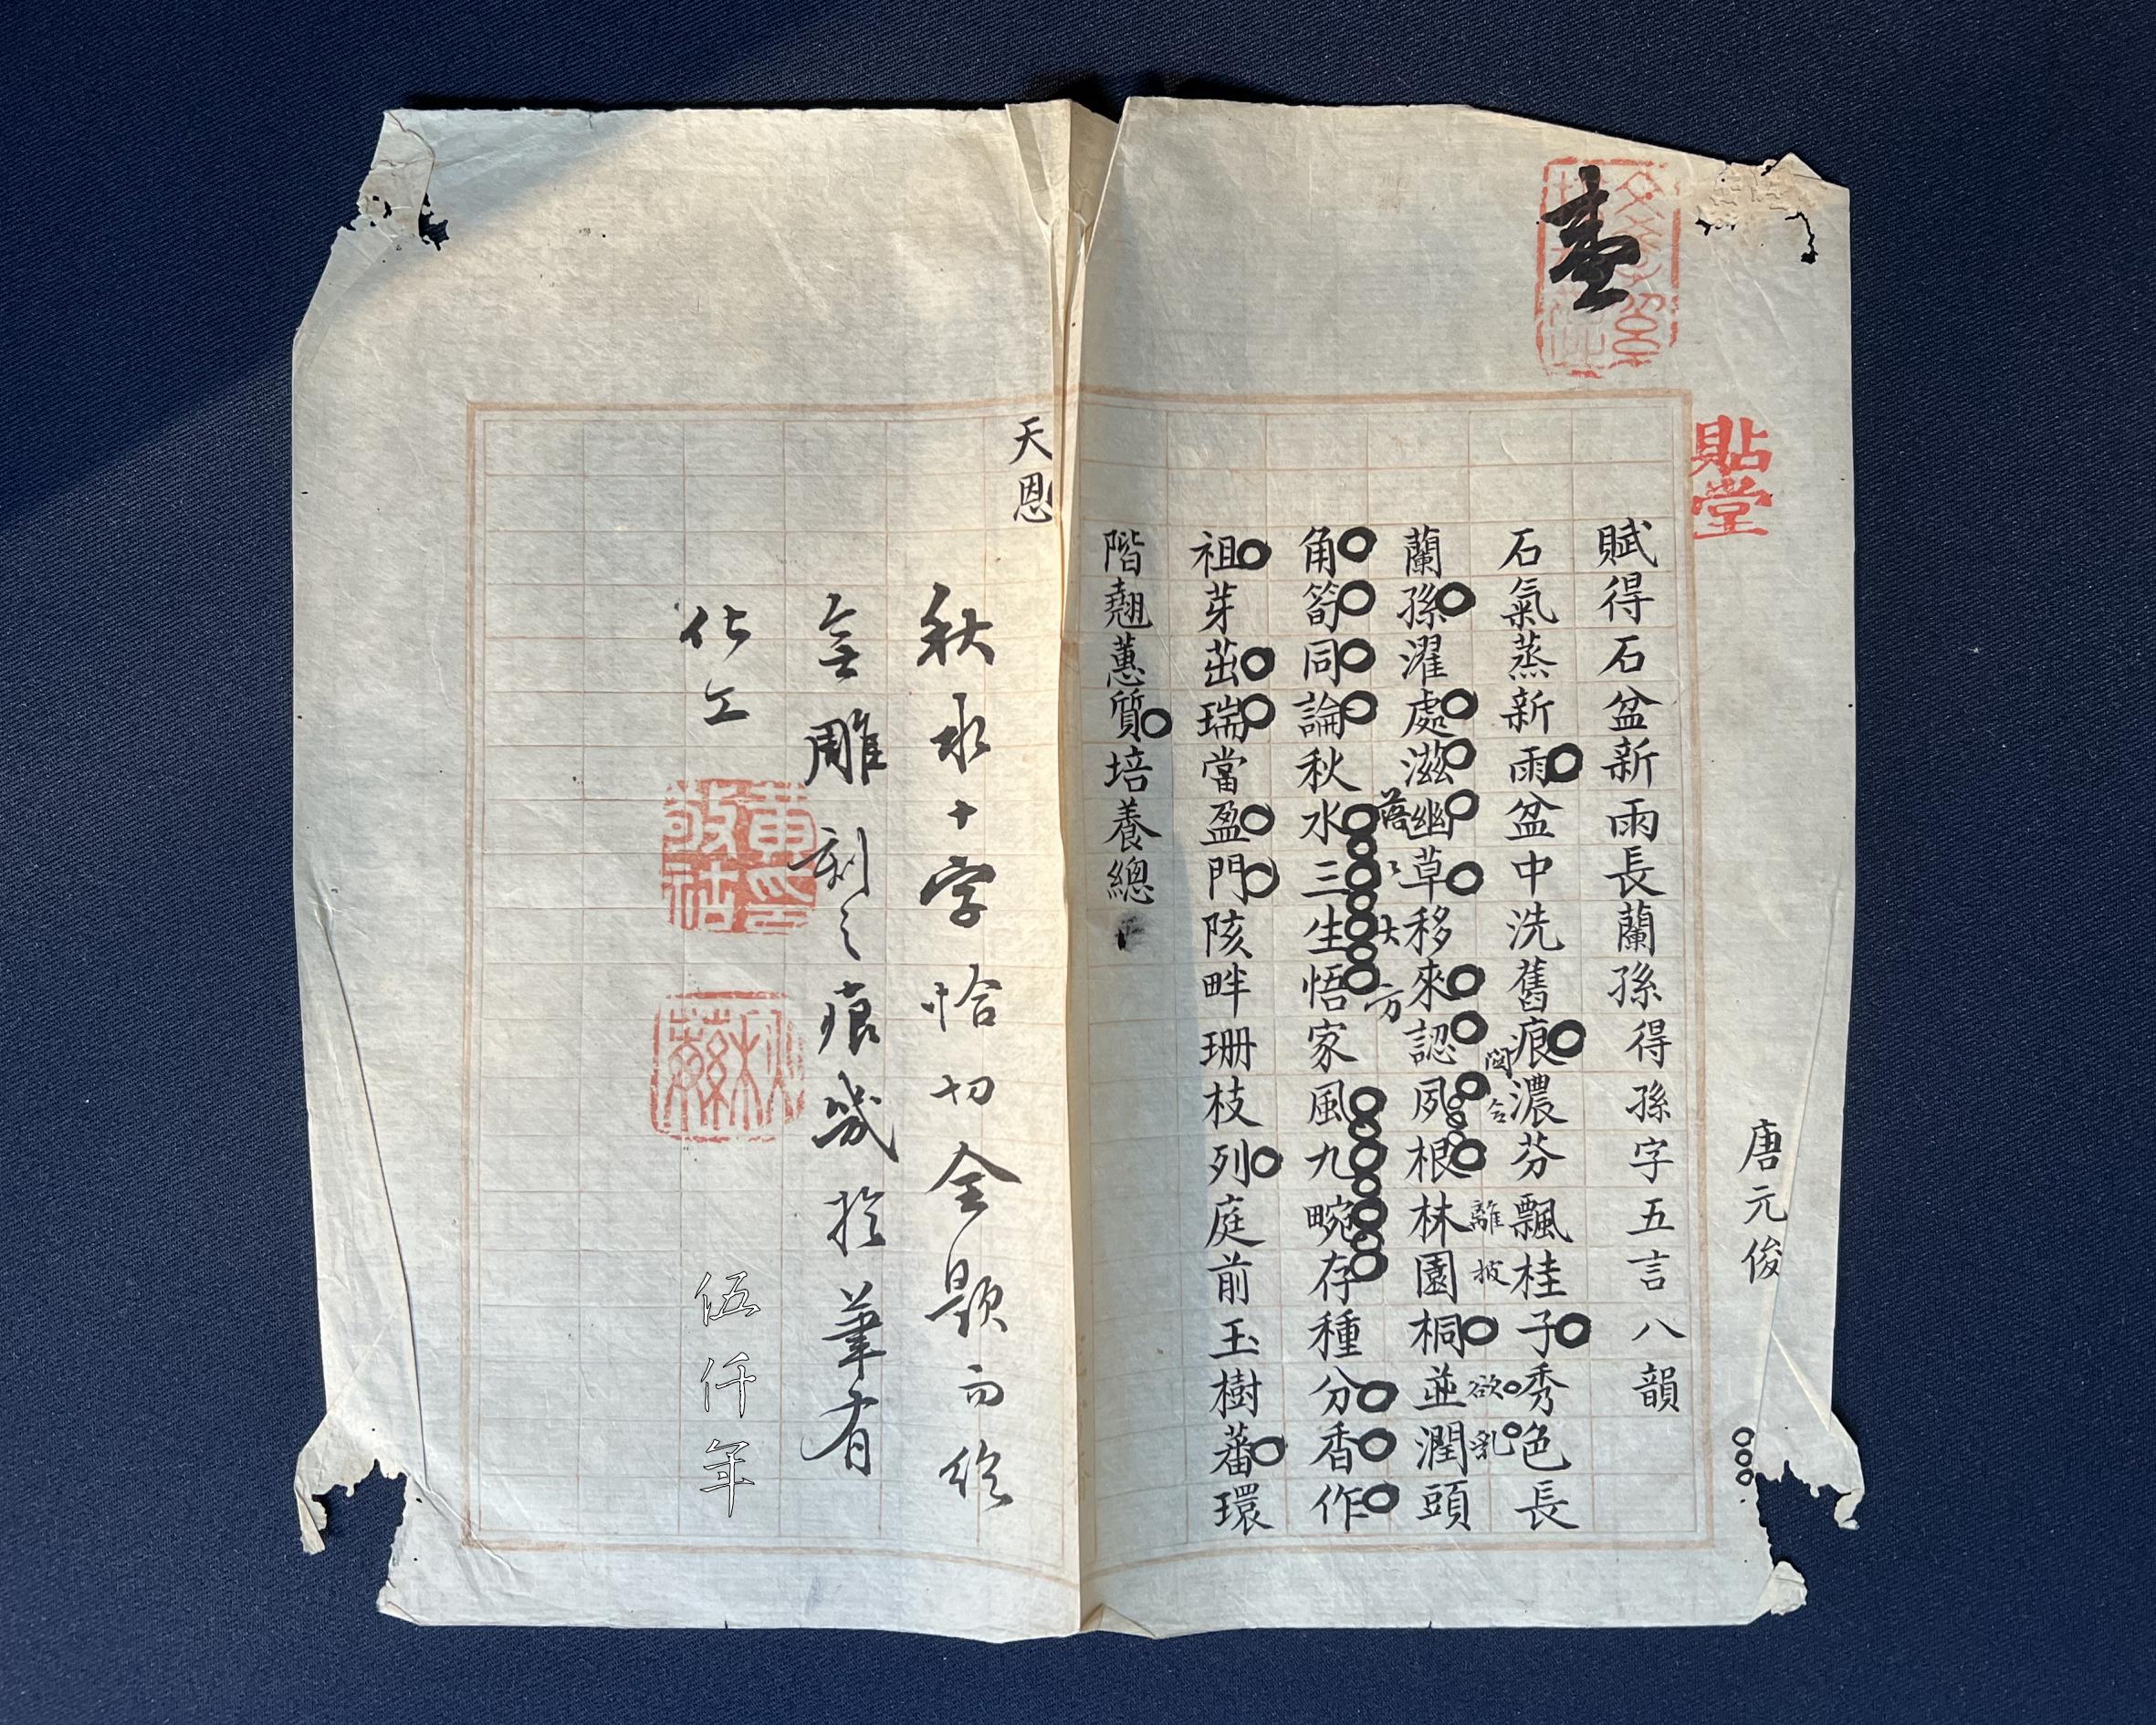 壹
貼堂
唐元俊
賦得石盆新雨長蘭孫得孫字五言八韻
石氣蒸新雨盆中洗舊痕濃芬飄桂子秀色長
蘭孫濯處滋幽草移來認夙根林園桐並潤頭
角筍同論秋水三生悟家風九畹存種分香作
祖芽茁瑞當盈門陔畔珊枝列庭前玉樹蕃環
階翹蕙質培養總
天恩
秋水十字恰切全題而絕
無雕刻之痕幾於筆有
化工
黃敬祜印
秋蘇
伍仟年